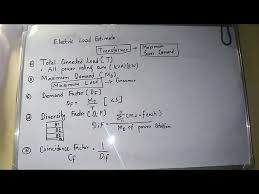 Electric Load Estimate
Transformer → Maximum
Power Demand
① Total Connected Load [T]
- All power rating sum (kW)
② Maximum Demand (MD)
Maximum Load → Consumer
③ Demand Factor [DF]
DF = MD / T [<1]
④ Diversity Factor [D.F]
D.F =
MD of power station
⑤ Coincidence Factor = 1 / D.F
CF